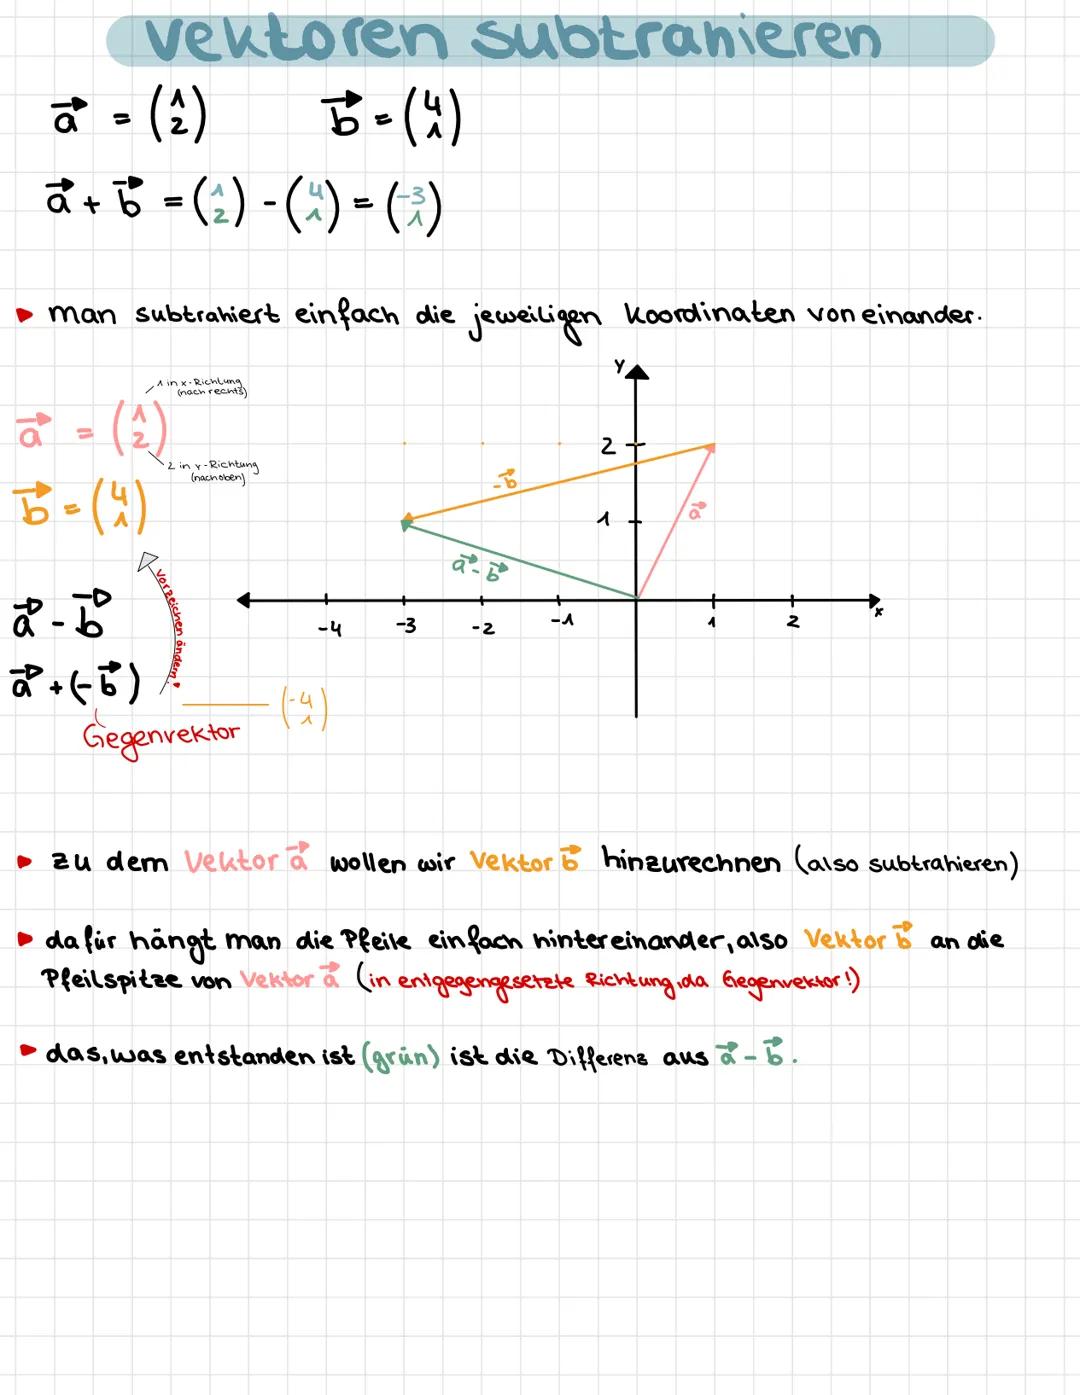 Vektoren subtrahieren
a⃗ = (1 2) b⃗ = (4 1)
a⃗ + b⃗ = (1 2) - (4 1) = (-3 1)
man subtrahiert einfach die jeweiligen Koordinaten voneinander.
1 in x-Richtung
(nach rechts)
a⃗ = (1 2)
2 in y-Richtung
(nach oben)
b⃗ = (4 1)
Vorzeichen ändern!
a⃗ - b⃗
a⃗ + (-b⃗)
(-4 1)
Gegenvektor
y
2
-b⃗
1
a⃗
a⃗ - b⃗
-4 -3 -2 -1 1 2 x
zu dem Vektor a⃗ wollen wir Vektor b⃗ hinzurechnen (also subtrahieren)
dafür hängt man die Pfeile einfach hintereinander, also Vektor b⃗ an die
Pfeilspitze von Vektor a⃗ (in entgegengesetzte Richtung, da Gegenvektor!)
das, was entstanden ist (grün) ist die Differenz aus a⃗ - b⃗.